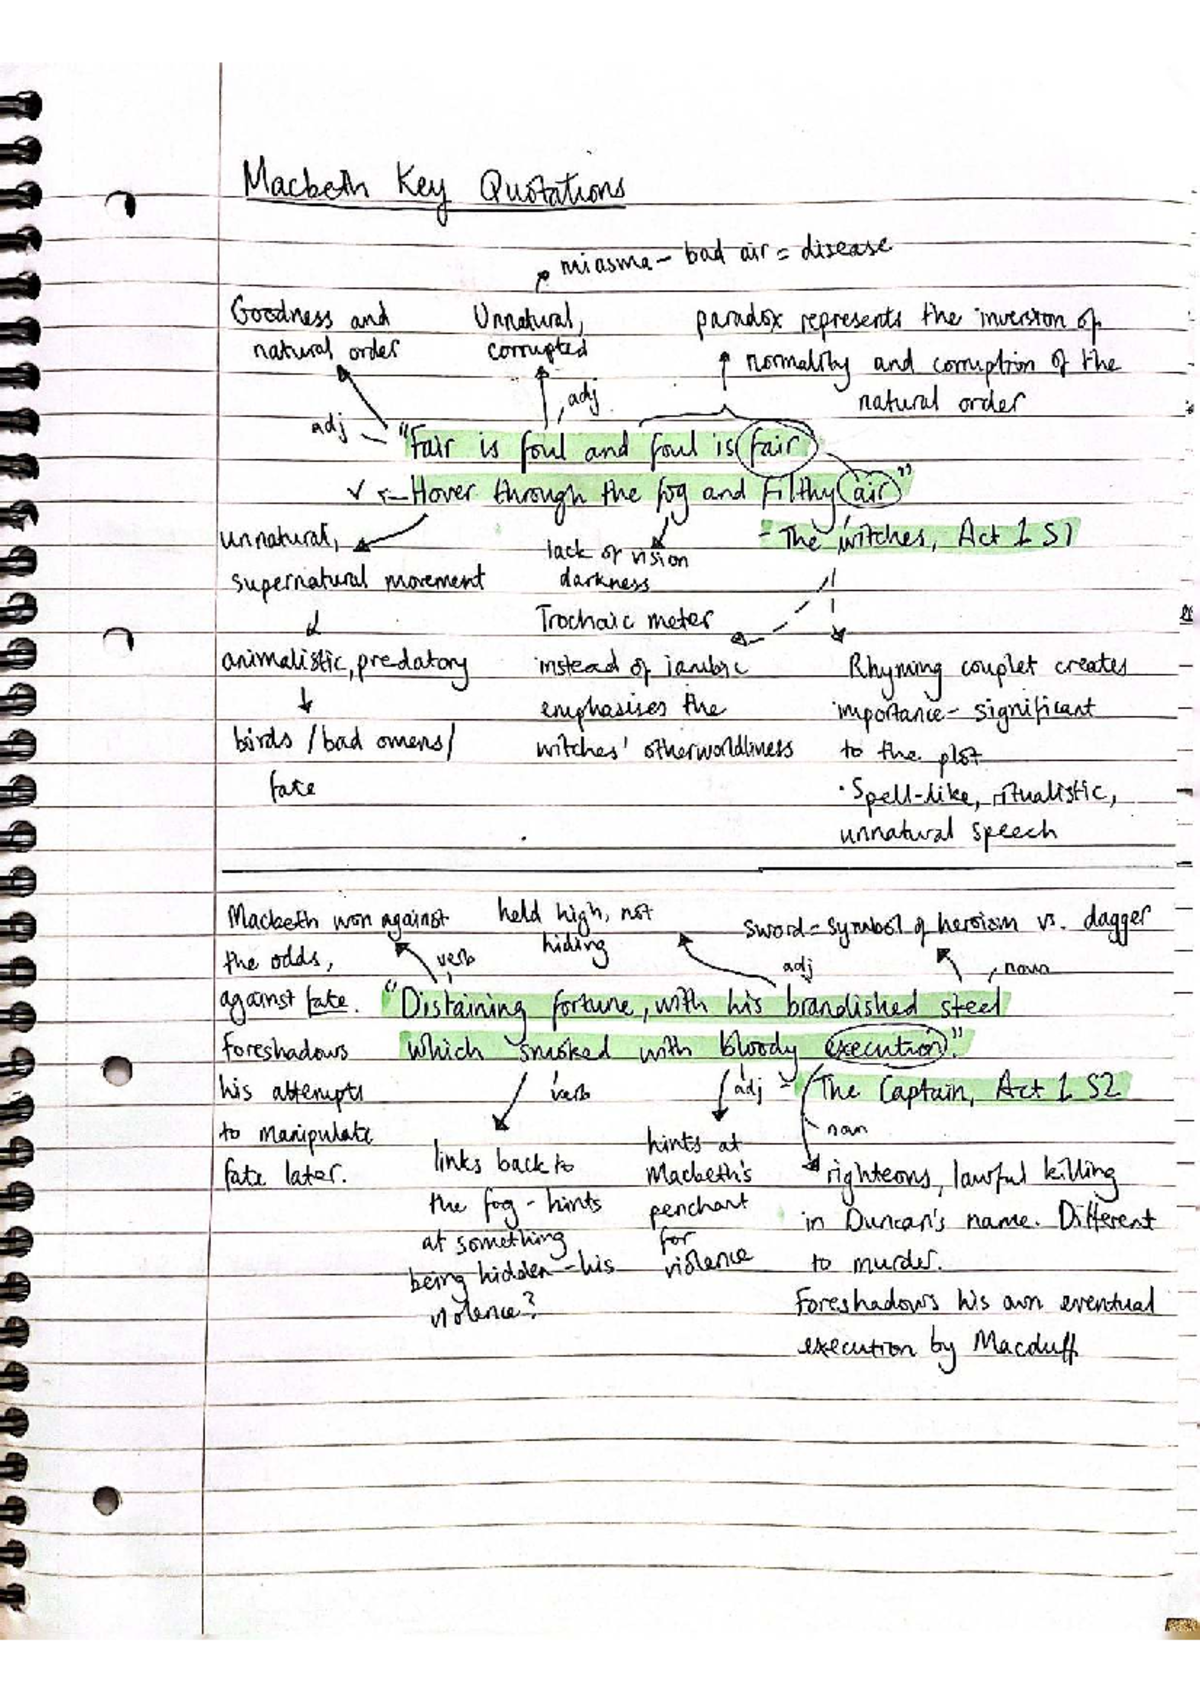 Macbeth Key Quotations
miasma - bad air = disease
Goodness and
natural order
Unnatural,
corrupted
paradox represents the inversion of
normality and corruption of the
natural order
adj
adj
"Fair is foul and foul is fair
v ← Hover through the fog and filthy air"
- The witches, Act 1 S1
unnatural,
supernatural movement
animalistic, predatory
birds / bad omens /
fate
lack of vision
darkness
Trochaic meter
instead of iambic
emphasises the
witches' otherworldliness
Rhyming couplet creates
importance - significant
to the plot
· Spell-like, ritualistic,
unnatural speech
Macbeth won against
the odds,
against fate.
foreshadows
his attempts
to manipulate
fate later.
held high, not
hiding
sword = symbol of heroism vs. dagger
verb
adj
noun
"Distaining fortune, with his brandished steel
which smoked with bloody execution."
- The Captain, Act 1 S2
verb
adj
noun
links back to
the fog - hints
at something
being hidden - his
violence?
hints at
Macbeth's
penchant
for
violence
righteous, lawful killing
in Duncan's name. Different
to murder.
Foreshadows his own eventual
execution by Macduff